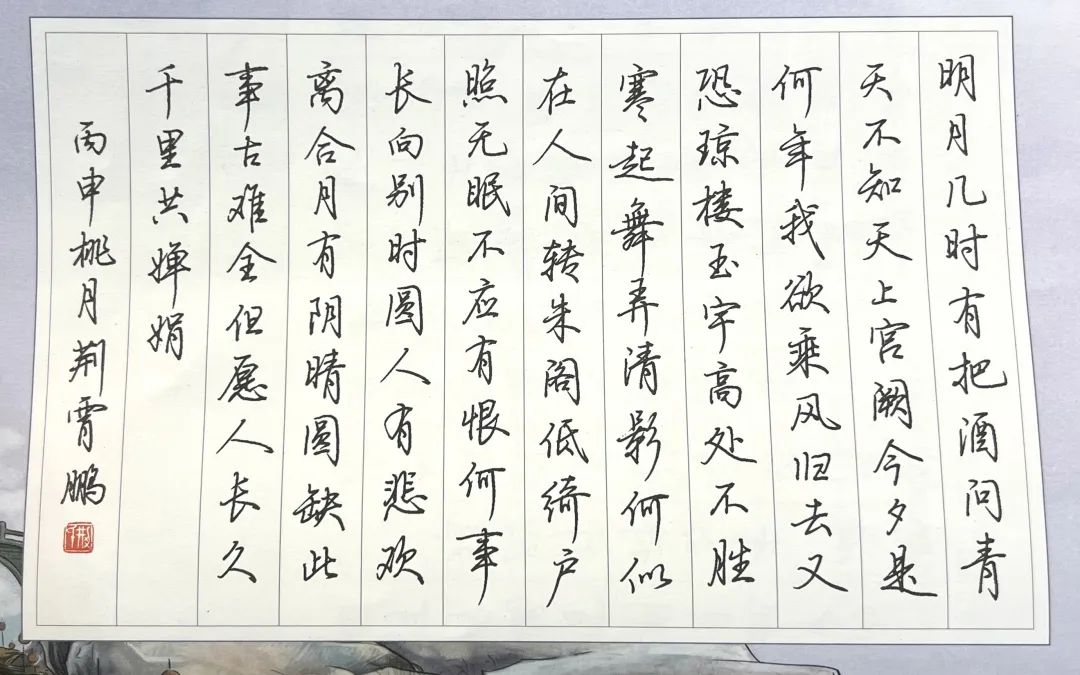 明月几时有把酒问青
天不知天上宫阙今夕是
何年我欲乘风归去又
恐琼楼玉宇高处不胜
寒起舞弄清影何似
在人间转朱阁低绮户
照无眠不应有恨何事
长向别时圆人有悲欢
离合月有阴晴圆缺此
事古难全但愿人长久
千里共婵娟
丙申桃月荆霄鹏